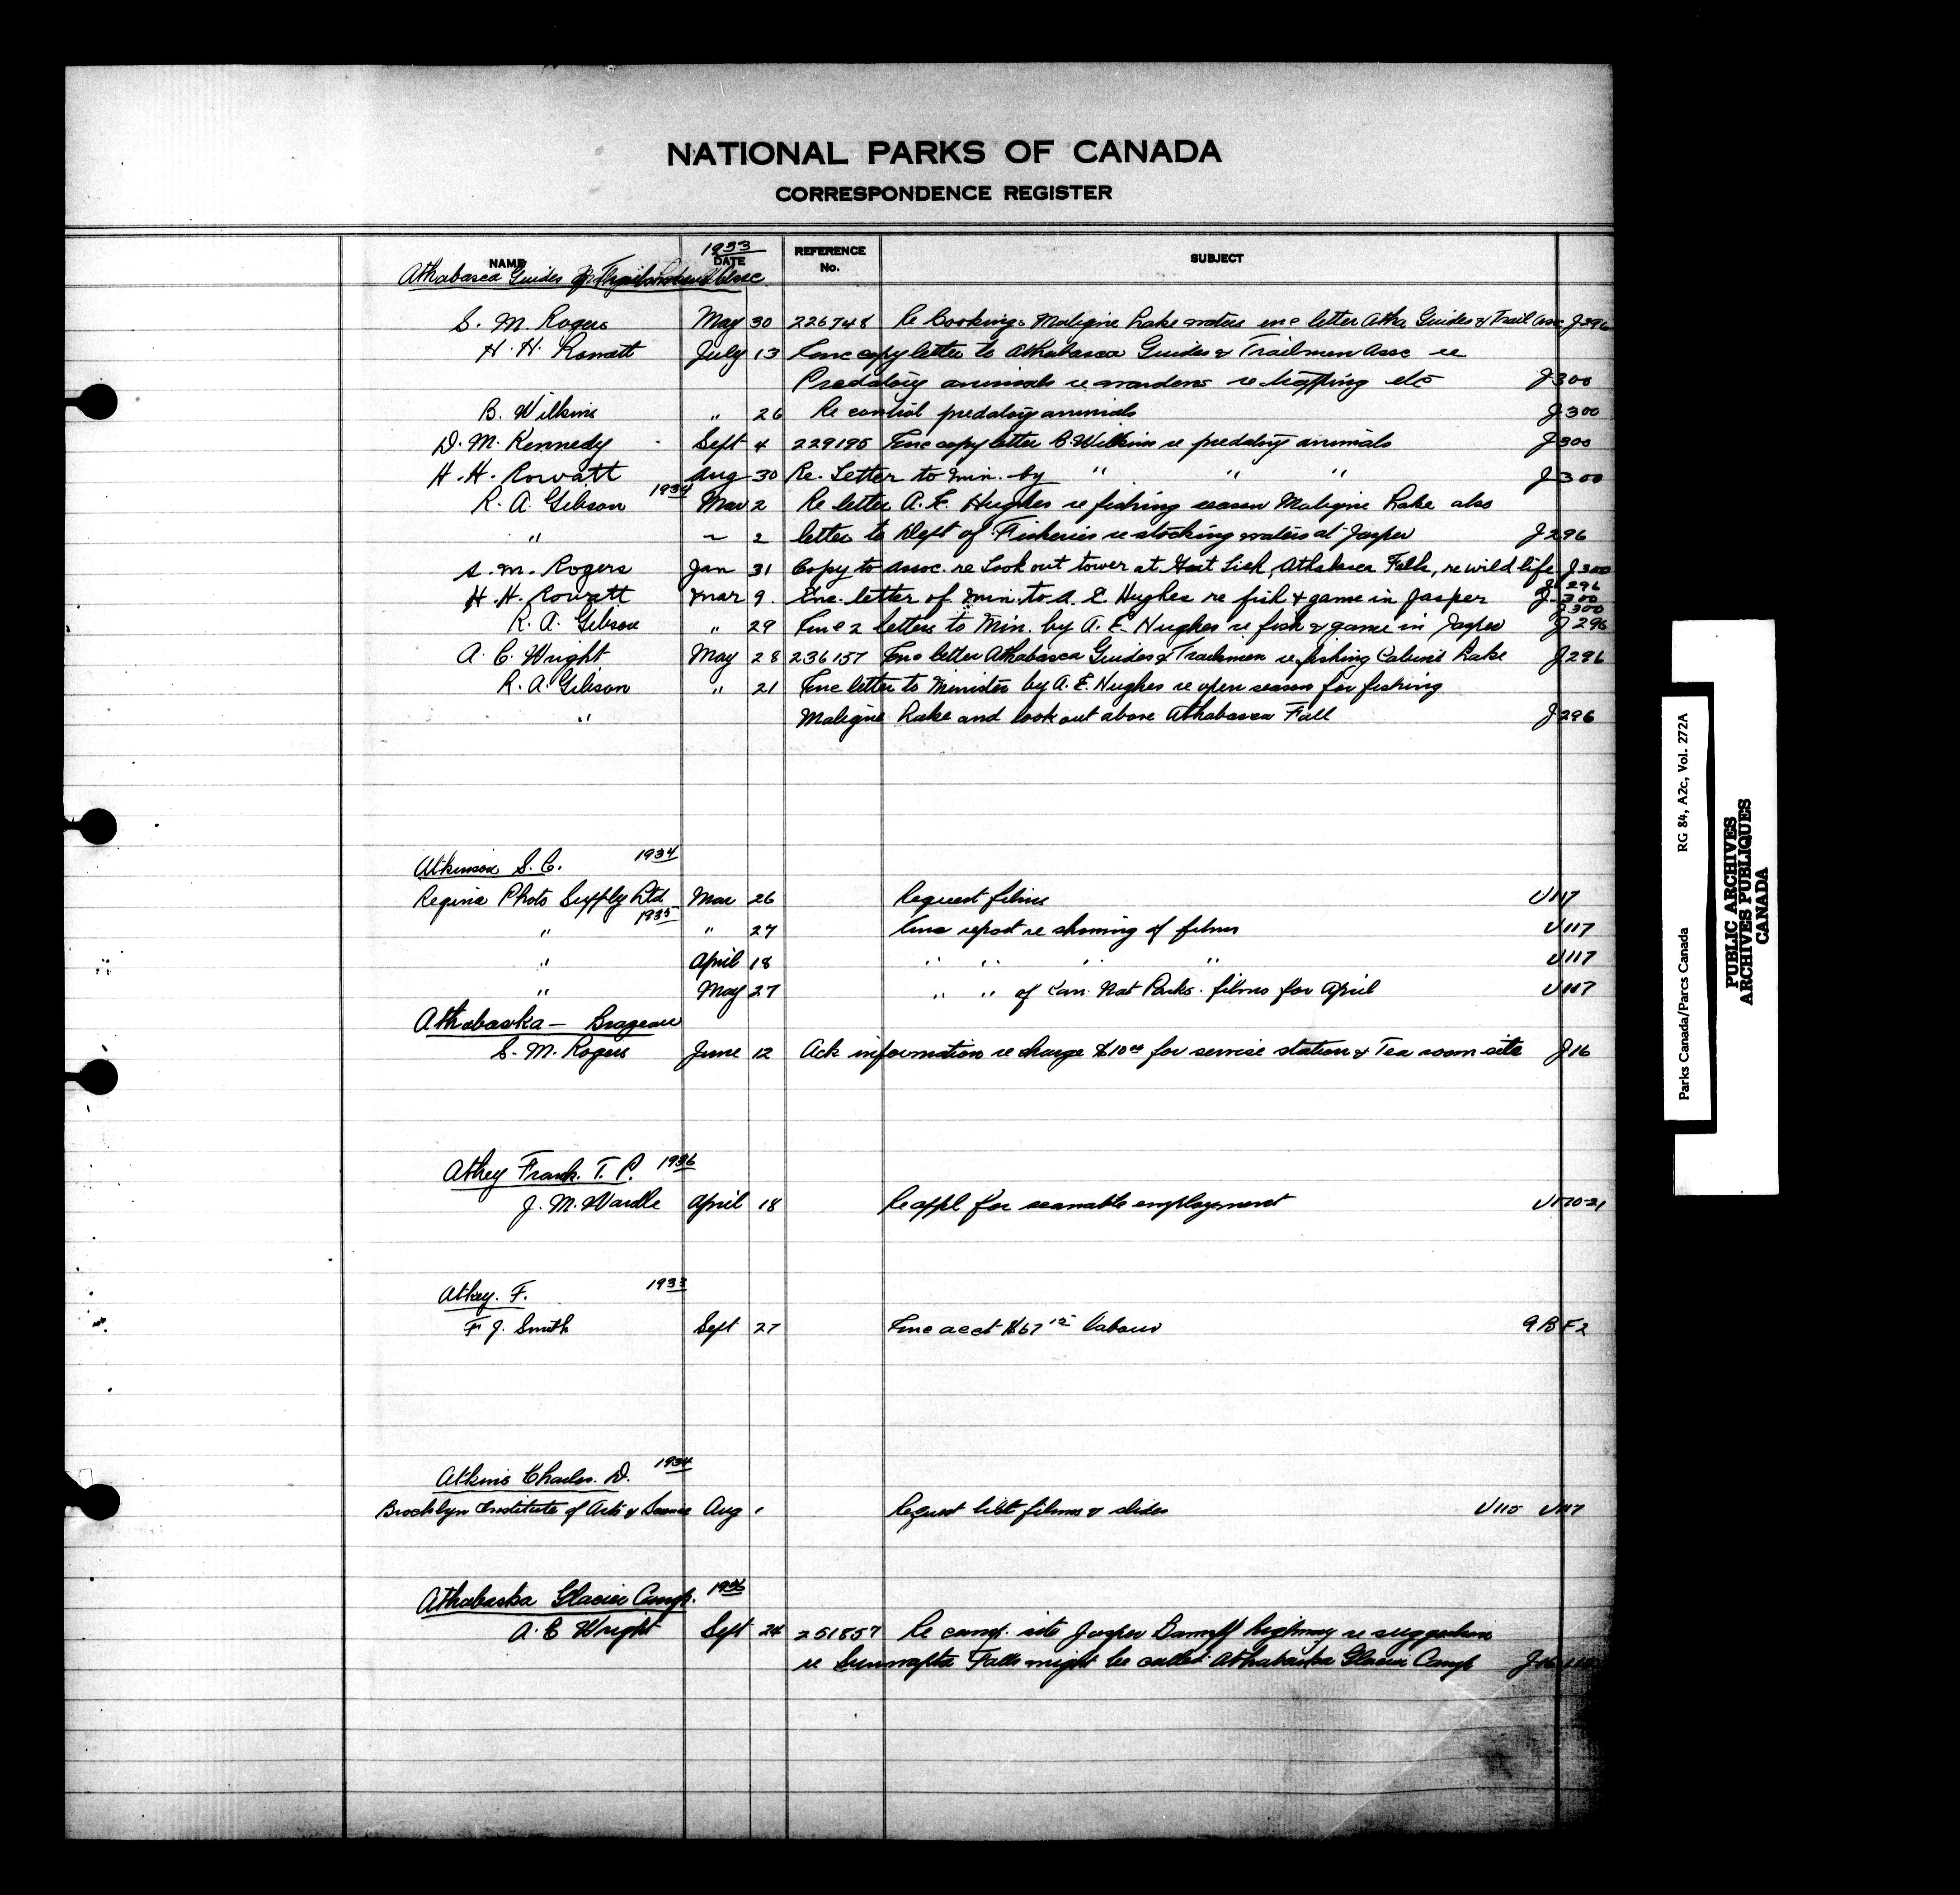 NATIONAL PARKS OF CANADA
CORRESPONDENCE REGISTER
1933
NAME DATE REFERENCE No. SUBJECT
Athabasca Guides
S. M. Rogers May 30 226748 Re Bookings Maligne Lake waters enc letter Atha Guides & Trail Assc J296
H. H. Rowatt July 13 Enc copy letter to Athabasca Guides & Trailmen Assc re
Predatory animals re wardens re trapping etc J300
B. Wilkins " 26 Re control predatory animals J300
D. M. Kennedy Sept 4 229195 Enc copy letter B. Wilkins re predatory animals J300
H. H. Rowatt Aug 30 Re. Letter to Min. by " " " J300
1934
R. A. Gibson Mar 2 Re letter A. E. Hughes re fishing season Maligne Lake also
" 2 letter to Dept of Fisheries re stocking waters at Jasper J296
S. M. Rogers Jan 31 Copy to Assoc. re Look out tower at Goat Lick, Athabasca Falls, re wild life J300
J296
H. H. Rowatt Mar 9. Enc. letter of Min. to A. E. Hughes re fish & game in Jasper J300
J300
R. A. Gibson " 29 Enc 2 letters to Min. by A. E. Hughes re fish & game in Jasper J296
A. C. Wright May 28 236157 Enc letter Athabasca Guides & Trailsmen re fishing Lake J296
R. A. Gibson " 21 Enc letter to Minister by A. E. Hughes re open season for fishing
" Maligne Lake and look out above Athabasca Fall J296
Atkinson S. C. 1934
Regina Photo Supply Ltd Mar 26 Request films U117
1935
" " 27 Enc report re showing of films U117
" April 18 " " " " U117
" May 27 " " of Can. Nat Parks. films for April U117
Athabaska — Brazeau
S. M. Rogers June 12 Ack information re charge $10.00 for service station & Tea room site J16
Athey Frank. T. P. 1936
J. M. Wardle April 18 Re appl for employment U170-21
Athey. F. 1933
F. J. Smith Sept 27 Enc acct $67 labour
Atkins Charles. D. 1934
Brooklyn Institute of Arts & Science Aug 1 Request list films & slides U115 U117
Athabaska Glacier Camp. 1936
A. C Wright Sept 24 251857 Re camp. site Jasper Banff highway re suggestion
re Sunwapta Falls might be called Athabaska Glacier Camp
Parks Canada/Parcs Canada RG 84, A2c, Vol. 272A
PUBLIC ARCHIVES
ARCHIVES PUBLIQUES
CANADA